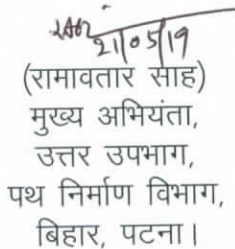 21/05/19
(रामावतार साह)
मुख्य अभियंता,
उत्तर उपभाग,
पथ निर्माण विभाग,
बिहार, पटना।